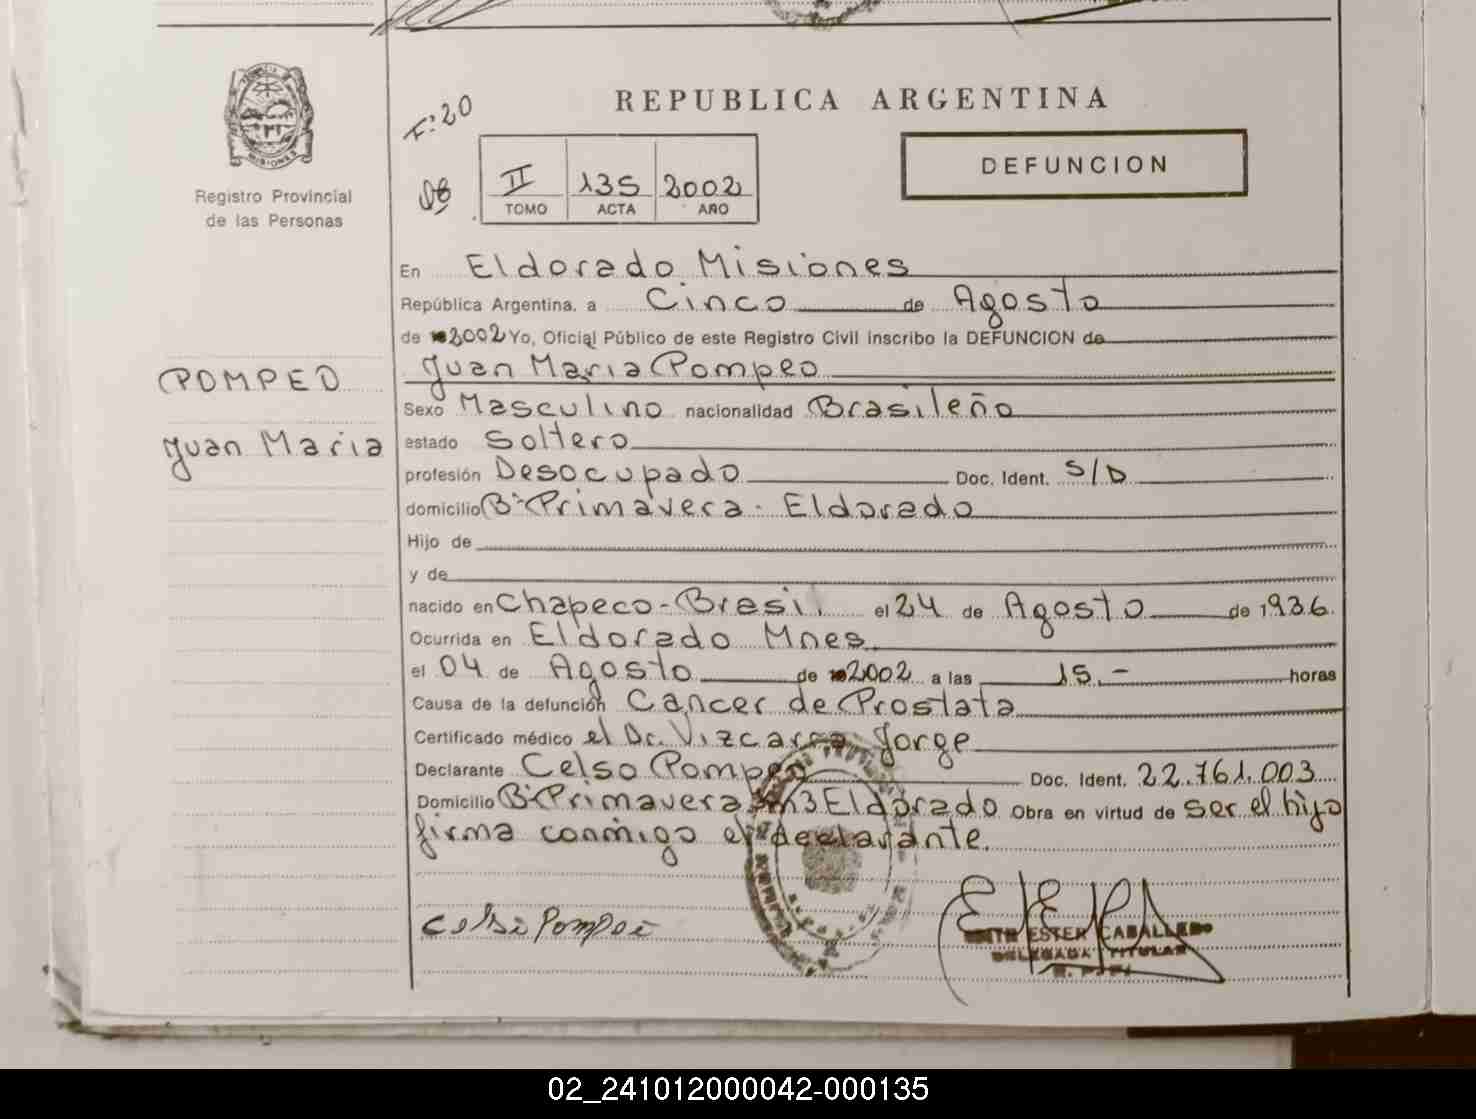 PROVINCIA DE
MISIONES
Registro Provincial
de las Personas
F: 20
REPUBLICA ARGENTINA
II 135 2002
TOMO ACTA AÑO
DEFUNCION
En Eldorado Misiones
República Argentina, a Cinco de Agosto
de 2002 Yo, Oficial Público de este Registro Civil inscribo la DEFUNCION de
POMPEO Juan Maria Pompeo
Sexo Masculino nacionalidad Brasileño
Juan Maria estado Soltero
profesión Desocupado Doc. Ident. S/D
domicilio Bº Primavera - Eldorado
Hijo de
y de
nacido en Chapeco - Brasil el 24 de Agosto de 1936.
Ocurrida en Eldorado Mnes.
el 04 de Agosto de 2002 a las 15.- horas
Causa de la defunción Cancer de Prostata
Certificado médico el Dr. Vizcarra Jorge
Declarante Celso Pompeo Doc. Ident. 22.761.003
Domicilio Bº Primavera Km3 Eldorado Obra en virtud de ser el hijo
firma conmigo el declarante.
Celso Pompeo
ESTER CABALLERO
DELEGADA TITULAR
02_241012000042-000135